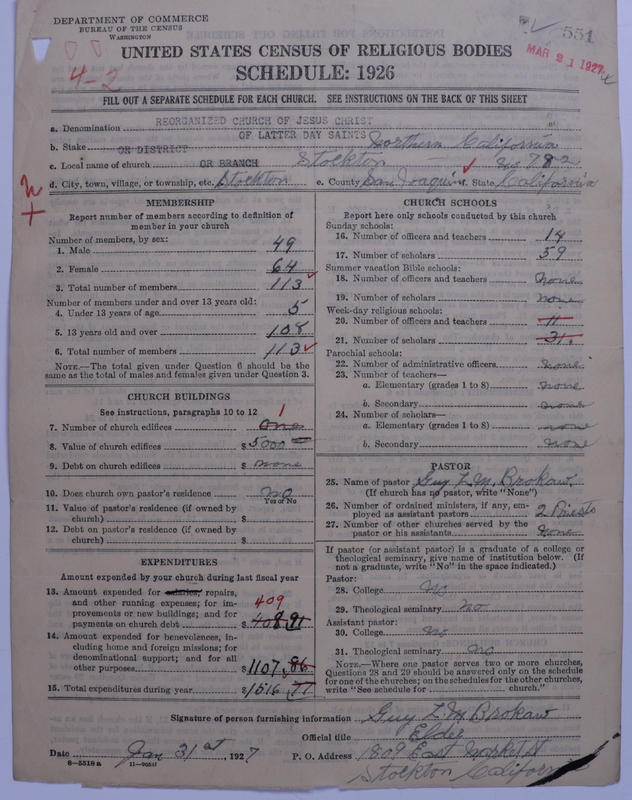 DEPARTMENT OF COMMERCE
BUREAU OF THE CENSUS
WASHINGTON
551
MAR 21 1927
4-2
UNITED STATES CENSUS OF RELIGIOUS BODIES
SCHEDULE: 1926
FILL OUT A SEPARATE SCHEDULE FOR EACH CHURCH. SEE INSTRUCTIONS ON THE BACK OF THIS SHEET
a. Denomination REORGANIZED CHURCH OF JESUS CHRIST
OF LATTER DAY SAINTS
b. Stake OR DISTRICT Northern California
c. Local name of church OR BRANCH Stockton No 782
d. City, town, village, or township, etc. Stockton e. County San Joaquin f. State California
MEMBERSHIP
Report number of members according to definition of
member in your church
Number of members, by sex:
1. Male 49
2. Female 64
3. Total number of members 113
Number of members under and over 13 years old:
4. Under 13 years of age 5
5. 13 years old and over 108
6. Total number of members 113
NOTE.—The total given under Question 6 should be the
same as the total of males and females given under Question 3.
CHURCH BUILDINGS
See instructions, paragraphs 10 to 12
1
7. Number of church edifices one
8. Value of church edifices $5000
9. Debt on church edifices $ none
10. Does church own pastor's residence no
Yes or No
11. Value of pastor's residence (if owned by
church) $
12. Debt on pastor's residence (if owned by
church) $
EXPENDITURES
Amount expended by your church during last fiscal year
13. Amount expended for salaries, repairs,
and other running expenses; for im-
provements or new buildings; and for
payments on church debt $ 408.91
409
14. Amount expended for benevolences, in-
cluding home and foreign missions; for
denominational support; and for all
other purposes $1107.86
15. Total expenditures during year $1516.77
CHURCH SCHOOLS
Report here only schools conducted by this church
Sunday schools:
16. Number of officers and teachers 14
17. Number of scholars 59
Summer vacation Bible schools:
18. Number of officers and teachers none
19. Number of scholars none
Week-day religious schools:
20. Number of officers and teachers 11
21. Number of scholars 31
Parochial schools:
22. Number of administrative officers none
23. Number of teachers—
a. Elementary (grades 1 to 8) none
b. Secondary none
24. Number of scholars—
a. Elementary (grades 1 to 8) none
b. Secondary none
PASTOR
25. Name of pastor Guy L. M. Brokaw
(If church has no pastor, write "None")
26. Number of ordained ministers, if any, em-
ployed as assistant pastors 2 Priests
27. Number of other churches served by the
pastor or his assistants none
If pastor (or assistant pastor) is a graduate of a college or
theological seminary, give name of institution below. (If
not a graduate, write "No" in the space indicated.)
Pastor:
28. College no
29. Theological seminary no
Assistant pastor:
30. College no
31. Theological seminary no
NOTE.—Where one pastor serves two or more churches,
Questions 28 and 29 should be answered only on the schedule
for one of the churches; on the schedules for the other churches,
write "See schedule for church."
Signature of person furnishing information Guy L. M. Brokaw
Official title Elder
Date Jan 31st, 1927 P. O. Address 1809 East Market St
8—5518a 11—9051
Stockton California